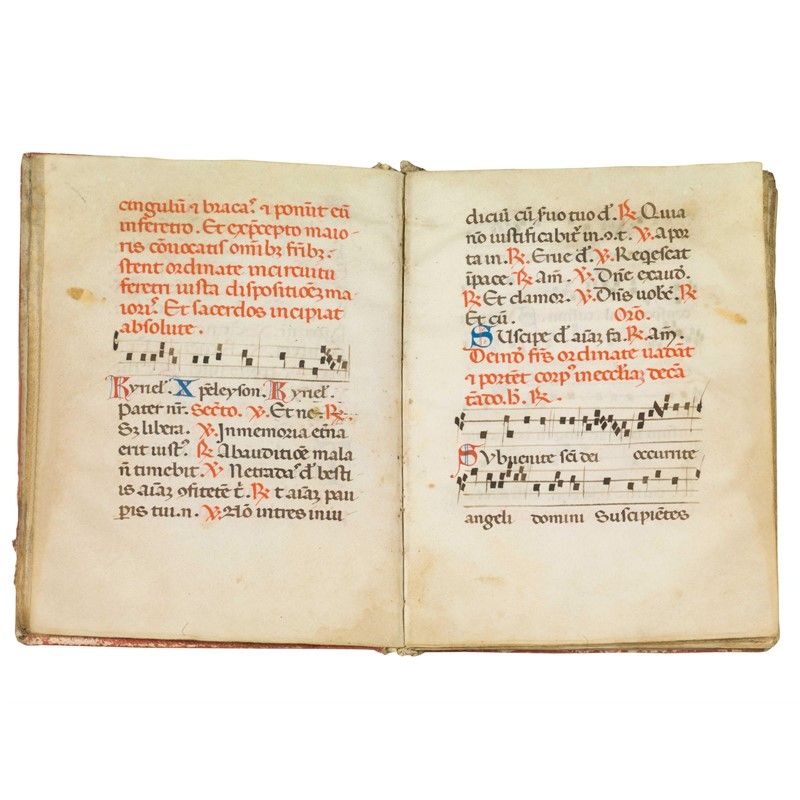 cingulū ⁊ braca⁊. ⁊ ponūt eū
inferetro. Et exp̄cepto maio-
ris cōuocatis om̄ibꝫ fr̄ibꝫ.
stent ordinate incircuitu
feretri iuxta dispositiōeꝫ ma
ioris. Et sacerdos incipiat
absolute.
Kyriel'. Xp̄eleyson. Kyriel'.
Pater nr̄. secr̄to. ℣. Et ne. ℟.
Sꝫ libera. ℣. In memoria et̄na
erit iust⁹. ℟ Ab auditiōe mala
n̄ timebit. ℣ Ne tradas d̄ besti
is aīaꝫ ꝯfitētē t̄. ℟ ⁊ aīaꝫ pau
ꝑis tui. n. ℣. Nō intres in iu
diciū cū s̉uo tuo d̄. ℟ Quia
nō iustificabit̄ in. ℣. A por
ta in. ℟. Erue d̄. ℣. Reqescat
ipace. ℟ Am̄. ℣. Dn̄e exauō.
℟ Et clamor. ℣. Dn̄s uobꝫ. ℟
Et cū. Orō.
Suscipe d̄ aīaꝫ fa. ℟ Am̄.
Deinō fr̄s ordinate uadāt
⁊ portēt corp⁹ in eccl̄iaꝫ decā
tādo. h̄. ℟.
Subuenite scī dei occurrite
angeli domini Suscipiētes